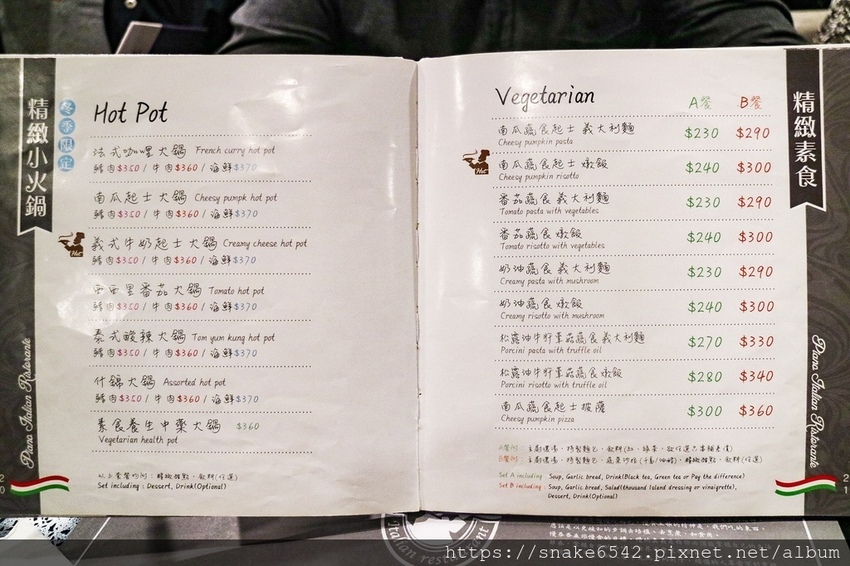 精緻小火鍋
冬季限定
Hot Pot
法式咖哩火鍋 French curry hot pot
豬肉$350 / 牛肉$360 / 海鮮$370
南瓜起士火鍋 Cheesy pumpk hot pot
豬肉$350 / 牛肉$360 / 海鮮$370
Hot
義式牛奶起士火鍋 Creamy cheese hot pot
豬肉$350 / 牛肉$360 / 海鮮$370
西西里番茄火鍋 Tomato hot pot
豬肉$350 / 牛肉$360 / 海鮮$370
泰式酸辣火鍋 Tom yum kung hot pot
豬肉$350 / 牛肉$360 / 海鮮$370
什錦火鍋 Assorted hot pot
豬肉$350 / 牛肉$360 / 海鮮$370
素食養生中藥火鍋 $360
Vegetarian health pot
以上套餐均附：精緻甜點、飲料(任選)
Set including : Dessert, Drink(Optional)
Piana Italian Ristorante
20
精緻素食
Vegetarian A餐 B餐
南瓜蔬食起士 義大利麵 $230 $290
Cheesy pumpkin pasta
Hot
南瓜蔬食起士 燉飯 $240 $300
Cheesy pumpkin risotto
番茄蔬食義大利麵 $230 $290
Tomato pasta with vegetables
番茄蔬食 燉飯 $240 $300
Tomato risotto with vegetables
奶油蔬食 義大利麵 $230 $290
Creamy pasta with mushroom
奶油蔬食 燉飯 $240 $300
Creamy risotto with mushroom
松露油牛肝蕈菇蔬食義大利麵 $270 $330
Porcini pasta with truffle oil
松露油牛肝蕈菇蔬食燉飯 $280 $340
Porcini risotto with truffle oil
南瓜蔬食起士披薩 $300 $360
Cheesy pumpkin pizza
Set A including : Soup, Garlic bread, Drink(Black tea, Green tea or Pay the difference)
Set B including : Soup, Garlic bread, Salad(thousand Island dressing or vinaigrette),
Dessert, Drink(Optional)
Piana Italian Ristorante
21
Italian restaurant
https://snake6542.pixnet.net/album